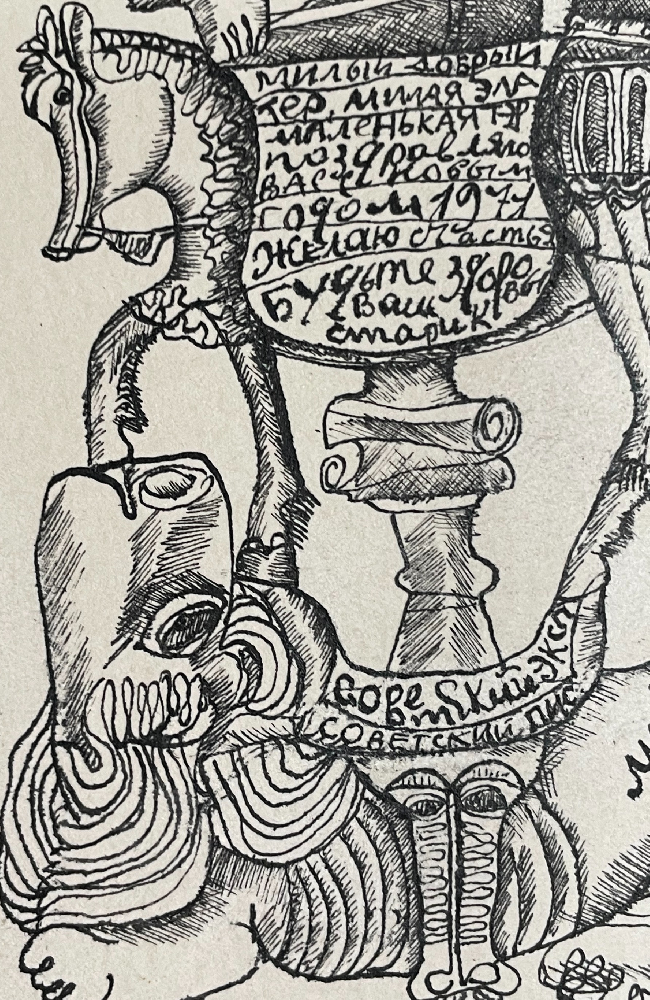 МИЛЫЙ ДОБРЫЙ
ТЕР, МИЛАЯ ЭЛА
МАЛЕНЬКАЯ
поздравляю
ВАС с НОВЫМ
годом 1971
ЖЕЛАЮ счастья
Будьте здоровы
Ваш
старик
СОВЕТСКИЙ ЭКСЛ
СОВЕТСКИЙ ПИС